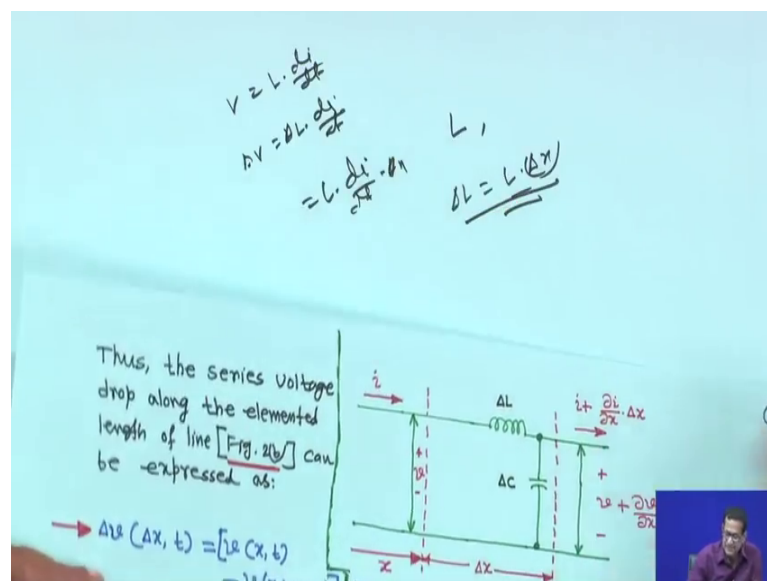 V = L. di/dt
ΔV = ΔL. di/dt
= L. di/dt .Δx
L,
ΔL = L.(Δx)
Thus, the series voltage
drop along the elemented
length of line [Fig. 2(b)] can
be expressed as:
Δv (Δx, t) = [v (x, t)
i
ΔL
i + ∂i/∂x . Δx
+
v
-
ΔC
+
v + ∂v/∂x
-
x
Δx